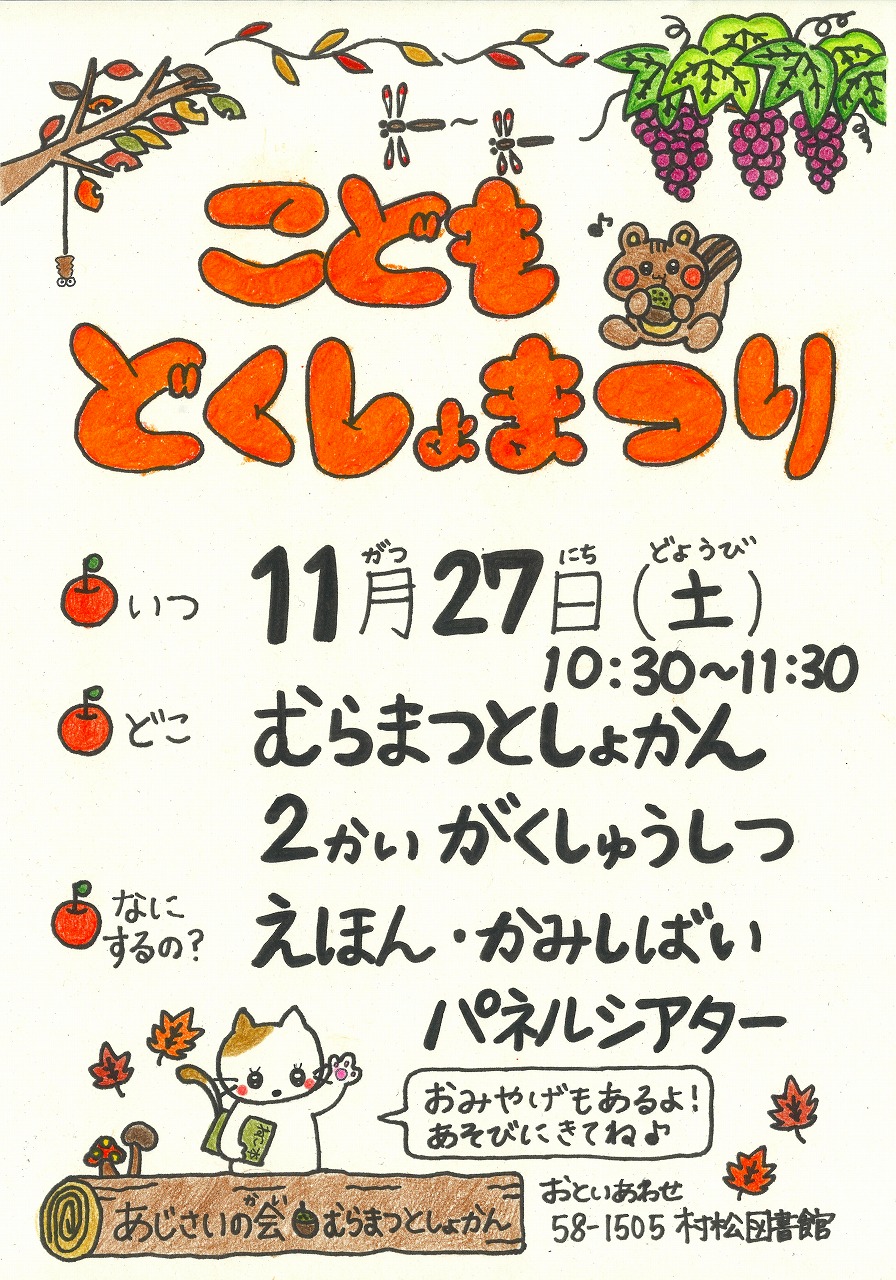 こども
どくしょまつり
いつ 11月27日(土)
がつ にち どようび
10:30〜11:30
どこ むらまつとしょかん
2かい がくしゅうしつ
なにするの? えほん・かみしばい
パネルシアター
おみやげもあるよ!
あそびにきてね♪
ねこ本
あじさいの会 むらまつとしょかん
かい
おといあわせ
58-1505 村松図書館